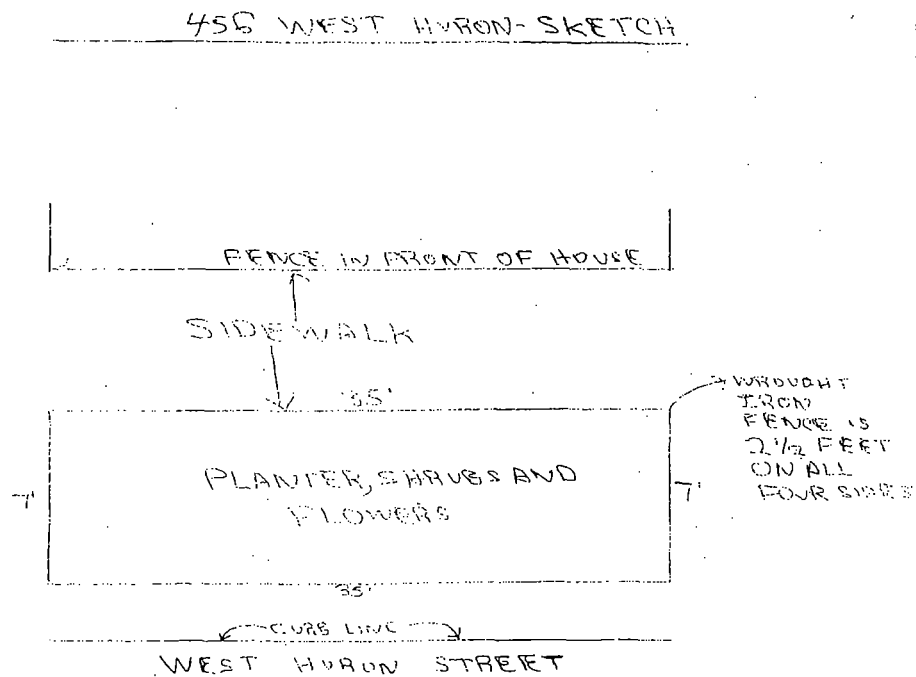 456 WEST HURON-SKETCH
FENCE IN FRONT OF HOUSE
SIDEWALK
35'
WROUGHT
IRON
FENCE IS
2 1/2 FEET
ON ALL
FOUR SIDES
7'
PLANTER, SHRUBS AND
FLOWERS
7'
35'
CURB LINE
WEST HURON STREET